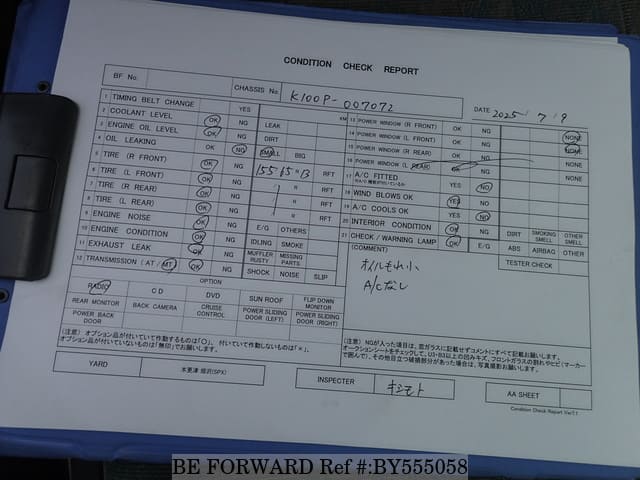 CONDITION CHECK REPORT
BF No.
CHASSIS No. K100P-007072
DATE 2025 / 7 / 9
1 TIMING BELT CHANGE YES KM
2 COOLANT LEVEL OK NG LEAK
3 ENGINE OIL LEVEL OK NG DIRT
4 OIL LEAKING OK NG SMALL BIG
5 TIRE (R FRONT) OK NG 155 65 R 13 RFT
6 TIRE (L FRONT) OK NG R RFT
7 TIRE (R REAR) OK NG R RFT
8 TIRE (L REAR) OK NG R RFT
9 ENGINE NOISE OK NG E/G OTHERS
10 ENGINE CONDITION OK NG IDLING SMOKE
11 EXHAUST LEAK OK NG MUFFLER RUSTY MISSING PARTS
12 TRANSMISSION (AT / MT) OK NG SHOCK NOISE SLIP
OPTION
RADIO CD DVD SUN ROOF FLIP DOWN MONITOR
REAR MONITOR BACK CAMERA CRUISE CONTROL POWER SLIDING DOOR (LEFT) POWER SLIDING DOOR (RIGHT)
POWER BACK DOOR
(注意) オプション品が付いていて作動するものは「〇」、付いていて作動しないものは「×」、
オプション品が付いていないものは「無印」でお願いします。
13 POWER WINDOW (R FRONT) OK NG NONE
14 POWER WINDOW (L FRONT) OK NG NONE
15 POWER WINDOW (R REAR) OK NG NONE
16 POWER WINDOW (L REAR) OK NG NONE
17 A/C FITTED YES NO
18 WIND BLOWS OK YES NO
19 A/C COOLS OK YES NO
20 INTERIOR CONDITION OK NG DIRT SMOKING SMELL OTHER SMELL
21 CHECK / WARNING LAMP OK E/G ABS AIRBAG OTHER
(COMMENT) TESTER CHECK
オイルもれ小
A/Cなし
(注意) NGが入った項目は、窓ガラスに記載せずコメントにすべて記載お願いします。
YARD 木更津 畑沢(SPX)
INSPECTER キシモト
AA SHEET
Condition Check Report Ver7.1
BE FORWARD Ref #:BY555058